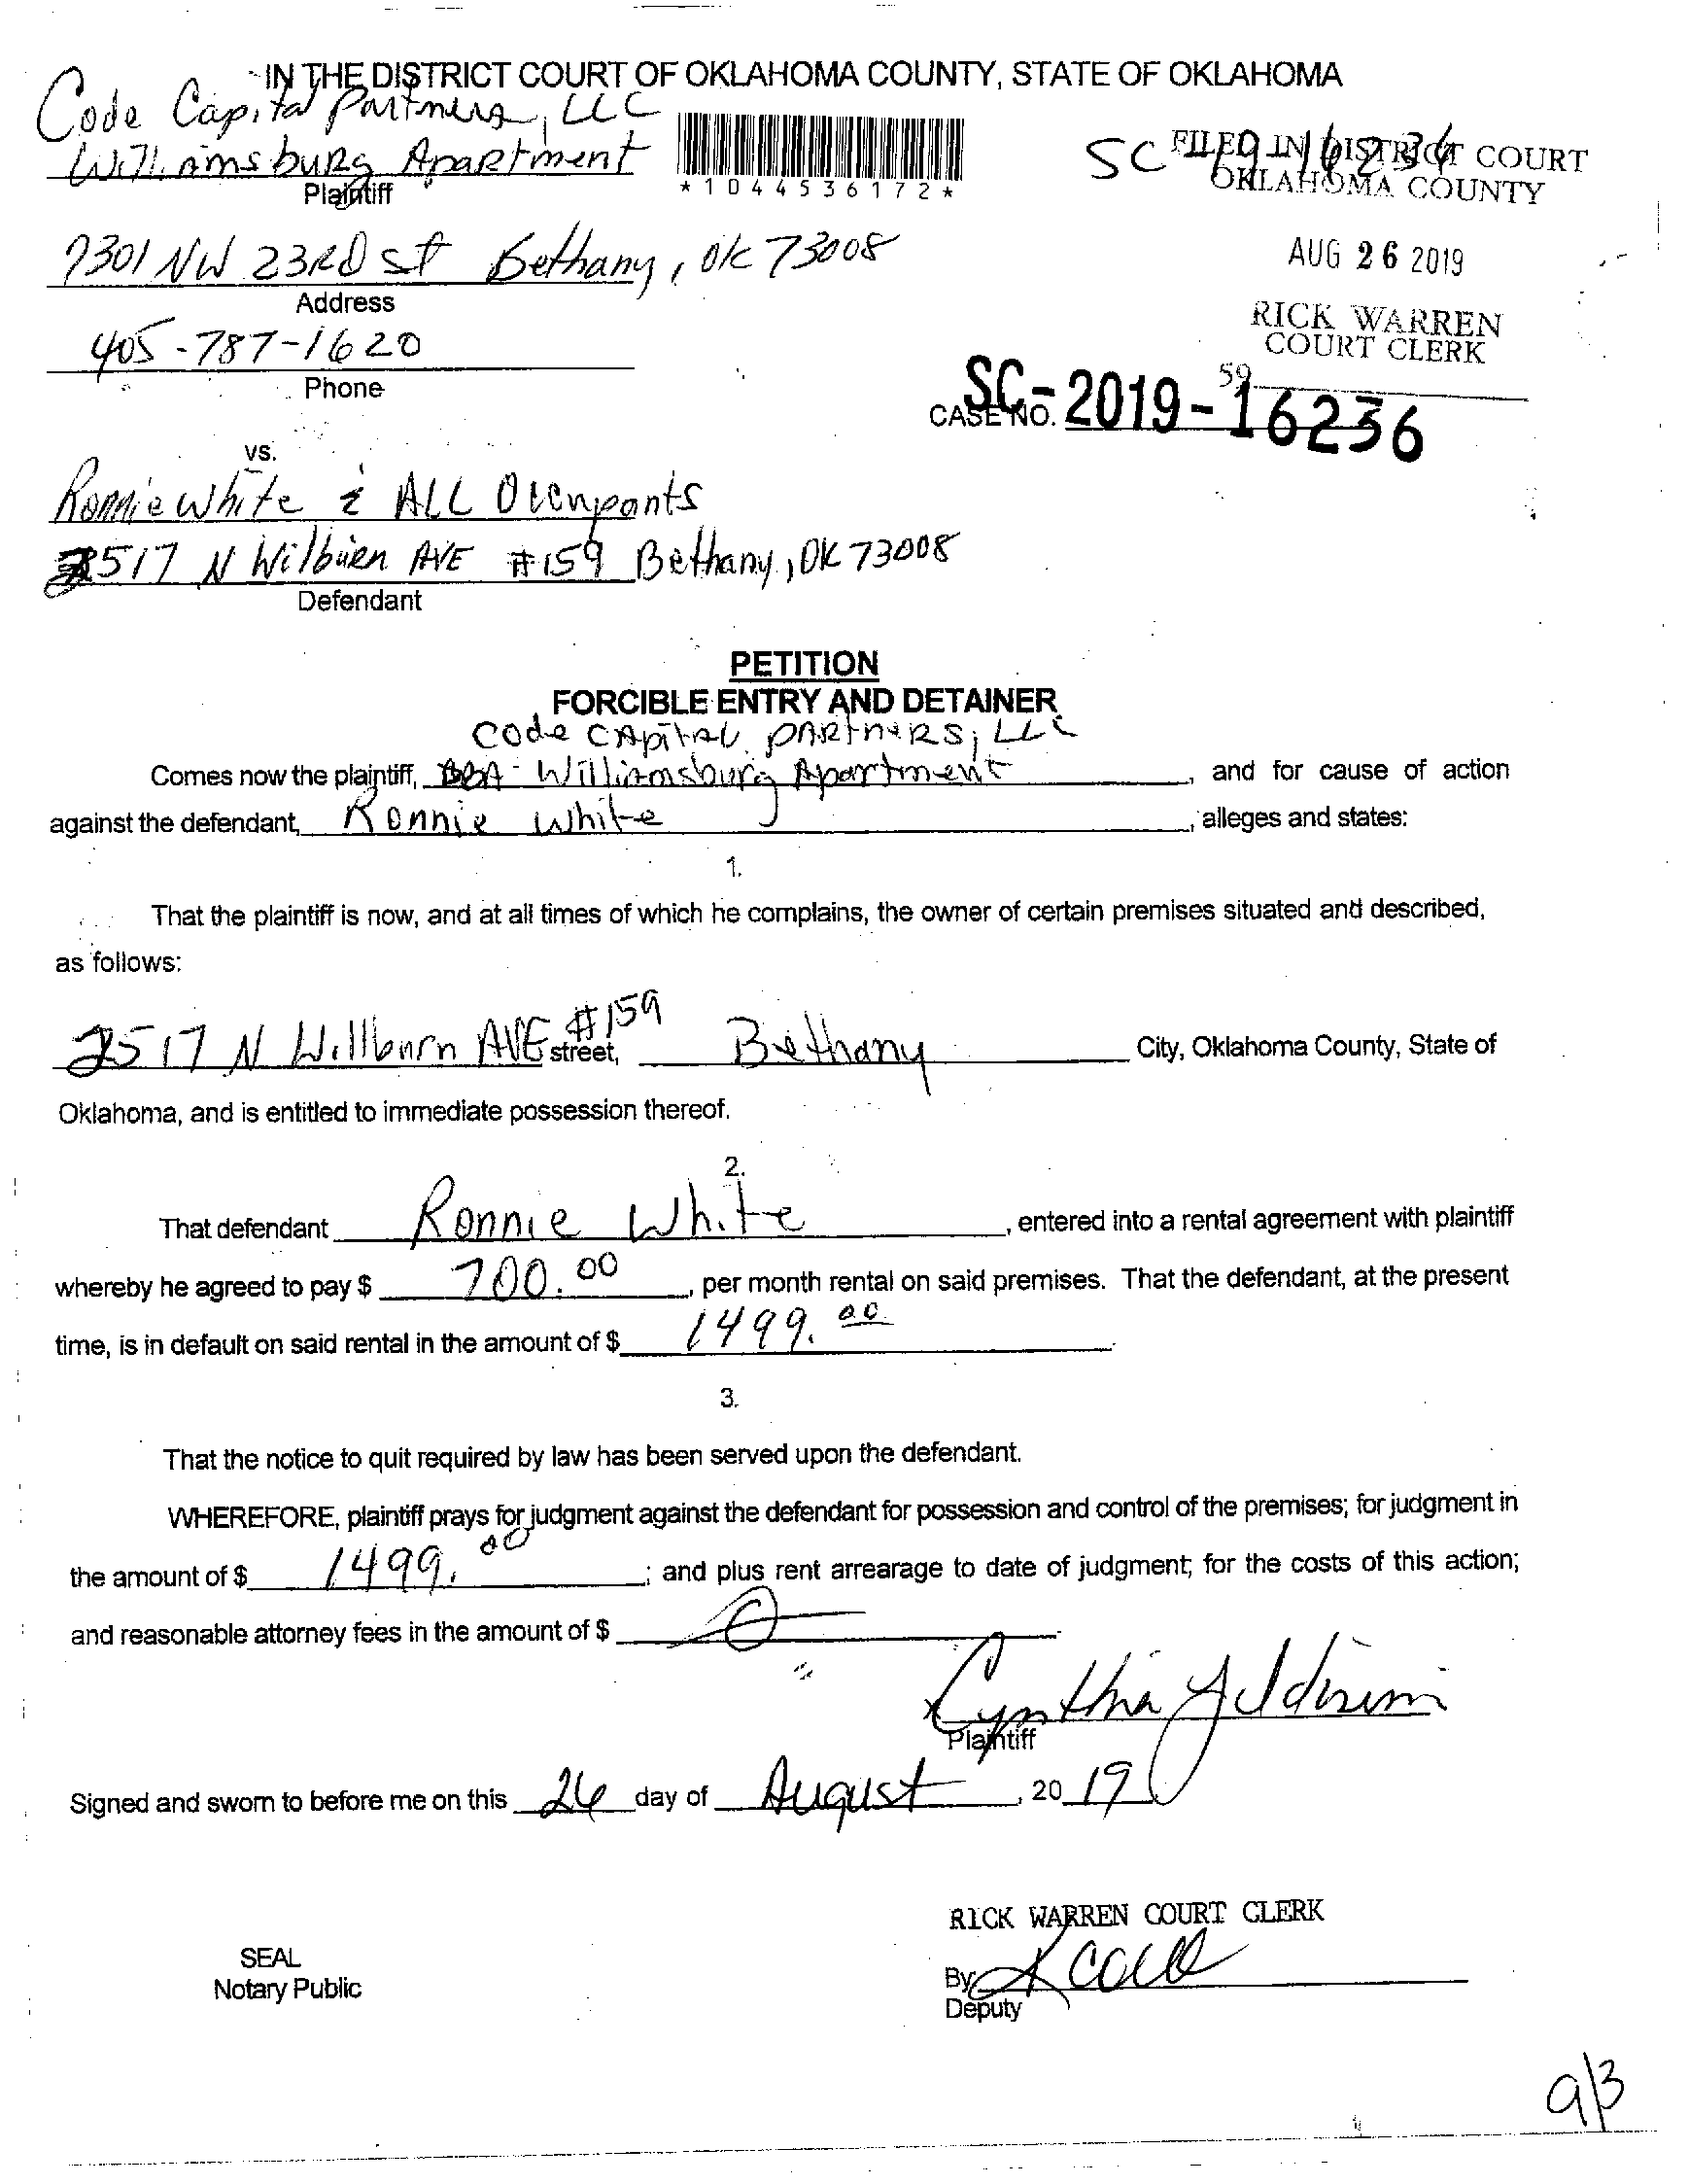 IN THE DISTRICT COURT OF OKLAHOMA COUNTY, STATE OF OKLAHOMA
Code Capital Partners, LLC
Williamsburg Apartment
Plaintiff
*1044536172*
SC-19-16236
FILED IN DISTRICT COURT
OKLAHOMA COUNTY
7301 NW 23RD St Bethany, OK 73008
Address
AUG 26 2019
405-787-1620
Phone
RICK WARREN
COURT CLERK
59
CASE NO. SC-2019-16236
vs.
Ronnie White & ALL Occupants
2517 N Wilburn AVE #159 Bethany, OK 73008
Defendant
PETITION
FORCIBLE ENTRY AND DETAINER
Code CApitAL PARtnERS, LLC
Comes now the plaintiff, DBA - Williamsburg Apartment, and for cause of action
against the defendant, Ronnie White, alleges and states:
1.
That the plaintiff is now, and at all times of which he complains, the owner of certain premises situated and described,
as follows:
2517 N Willburn AVE #159 street, Bethany City, Oklahoma County, State of
Oklahoma, and is entitled to immediate possession thereof.
2.
That defendant Ronnie White, entered into a rental agreement with plaintiff
whereby he agreed to pay $ 700.00, per month rental on said premises. That the defendant, at the present
time, is in default on said rental in the amount of $ 1499.00.
3.
That the notice to quit required by law has been served upon the defendant.
WHEREFORE, plaintiff prays for judgment against the defendant for possession and control of the premises; for judgment in
the amount of $ 1499.00; and plus rent arrearage to date of judgment; for the costs of this action;
and reasonable attorney fees in the amount of $
Cynthia Yildirim
Plaintiff
Signed and sworn to before me on this 26 day of August, 20 19
RICK WARREN COURT CLERK
SEAL
Notary Public
By
Deputy
9/3